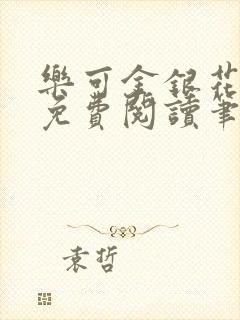 樂可金銀花
免費閱讀筆
袁哲